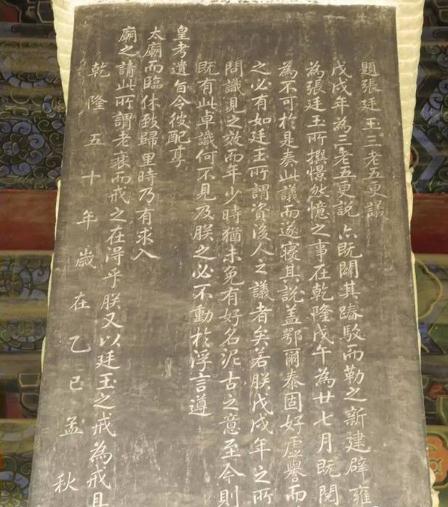 題張廷玉三老五更議
戊戌年為三老五更說亦既闢其踳駁而勒之新建辟雍
為張廷玉所撰憬然憶之事在乾隆戊午為廿七月既闋
為不可於是奏此議而遂寢其說盖鄂爾泰固好虛譽而
之必有如廷玉所謂資後人之議者矣若朕戊戌年之所
問識見之效而年少時猶未免有好名泥古之意至今則
既有此卓識何不見及朕之必不動於浮言遵
皇考遺旨令彼配享
太廟而臨休致歸里時乃有求入
廟之請此所謂老衰而戒之在得乎朕又以廷玉之戒為戒且
乾隆五十年歲在乙巳孟秋